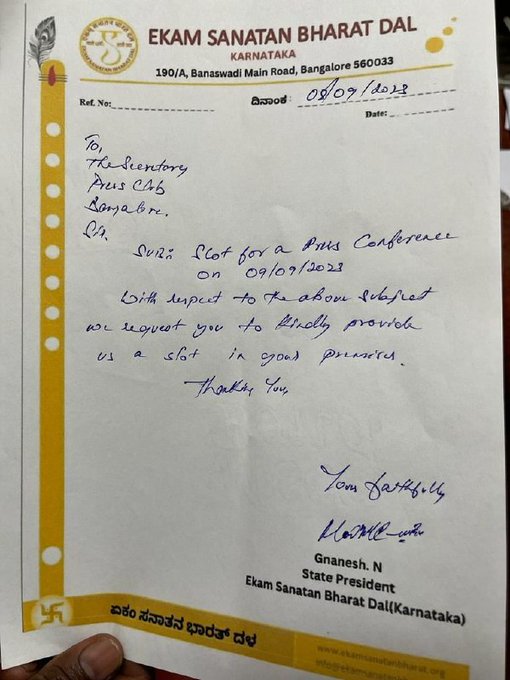 EKAM SANATAN BHARAT DAL
KARNATAKA
190/A, Banaswadi Main Road, Bangalore 560033
Ref. No:
ದಿನಾಂಕ : 08/09/2023
Date:
To,
The Secretary
Press Club
Bangalore.
Sir.
Sub:- Slot for a Press Conference
on 09/09/2023
With respect to the above subject
we request you to kindly provide
us a slot in your premises.
Thanking You,
Yours faithfully
Gnanesh. N
State President
Ekam Sanatan Bharat Dal(Karnataka)
ಏಕಂ ಸನಾತನ ಭಾರತ್ ದಳ
www.ekamsanatanbharat.org
info@ekamsanatanbharat.org